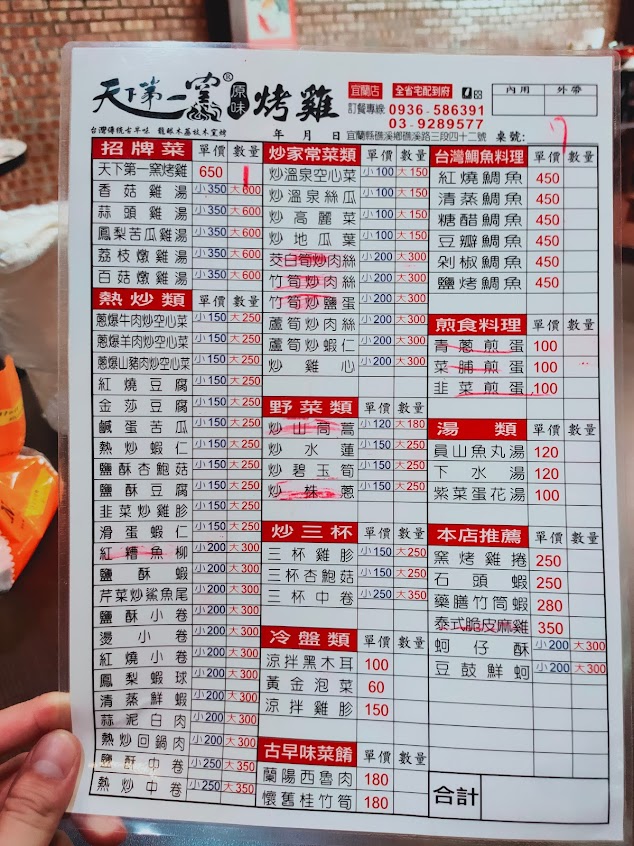 天下第一窯® 原味 烤雞
宜蘭店 全省宅配到府
訂餐專線 0936-586391
03-9289577
內用 外帶
台灣傳統古早味 龍眼木荔枝木窯烤 年 月 日 宜蘭縣礁溪鄉礁溪路三段四十二號 桌號: 7
招牌菜 單價 數量
天下第一窯烤雞 650 1
香菇雞湯 小350 大600
蒜頭雞湯 小350 大600
鳳梨苦瓜雞湯 小350 大600
荔枝燉雞湯 小350 大600
百菇燉雞湯 小350 大600
熱炒類 單價 數量
蔥爆牛肉炒空心菜 小150 大250
蔥爆羊肉炒空心菜 小150 大250
蔥爆山豬肉炒空心菜 小150 大250
紅燒豆腐 小150 大250
金莎豆腐 小150 大250
鹹蛋苦瓜 小150 大250
熱炒蝦仁 小150 大250
鹽酥杏鮑菇 小150 大250
鹽酥豆腐 小150 大250
韭菜炒雞胗 小150 大250
滑蛋蝦仁 小150 大250
紅糟魚柳 小200 大300
鹽酥蝦 小200 大300
芹菜炒鯊魚尾 小200 大300
鹽酥小卷 小200 大300
燙小卷 小200 大300
紅燒小卷 小200 大300
鳳梨蝦球 小200 大300
清蒸鮮蝦 小200 大300
蒜泥白肉 小200 大300
熱炒回鍋肉 小200 大300
鹽酥中卷 小250 大350
熱炒中卷 小250 大350
炒家常菜類 單價 數量
炒溫泉空心菜 小100 大150
炒溫泉絲瓜 小100 大150
炒高麗菜 小100 大150
炒地瓜葉 小100 大150
茭白筍炒肉絲 小200 大300
竹筍炒肉絲 小200 大300
竹筍炒鹽蛋 小200 大300
蘆筍炒肉絲 小200 大300
蘆筍炒蝦仁 小200 大300
炒雞心 小200 大300
野菜類 單價 數量
炒山茼蒿 小120 大180
炒水蓮 小150 大250
炒碧玉筍 小150 大250
炒株蔥 小150 大250
炒三杯 單價 數量
三杯雞胗 小150 大250
三杯杏鮑菇 小150 大250
三杯中卷 小250 大350
冷盤類 單價 數量
涼拌黑木耳 100
黃金泡菜 60
涼拌雞胗 150
古早味菜餚 單價 數量
蘭陽西魯肉 180
懷舊桂竹筍 180
台灣鯛魚料理 單價 數量
紅燒鯛魚 450
清蒸鯛魚 450
糖醋鯛魚 450
豆瓣鯛魚 450
剁椒鯛魚 450
鹽烤鯛魚 450
煎食料理 單價 數量
青蔥煎蛋 100
菜脯煎蛋 100
韭菜煎蛋 100
湯類 單價 數量
員山魚丸湯 120
下水湯 120
紫菜蛋花湯 100
本店推薦 單價 數量
窯烤雞捲 250
石頭蝦 250
藥膳竹筒蝦 280
泰式脆皮麻雞 350
蚵仔酥 小200 大300
豆鼓鮮蚵 小200 大300
合計